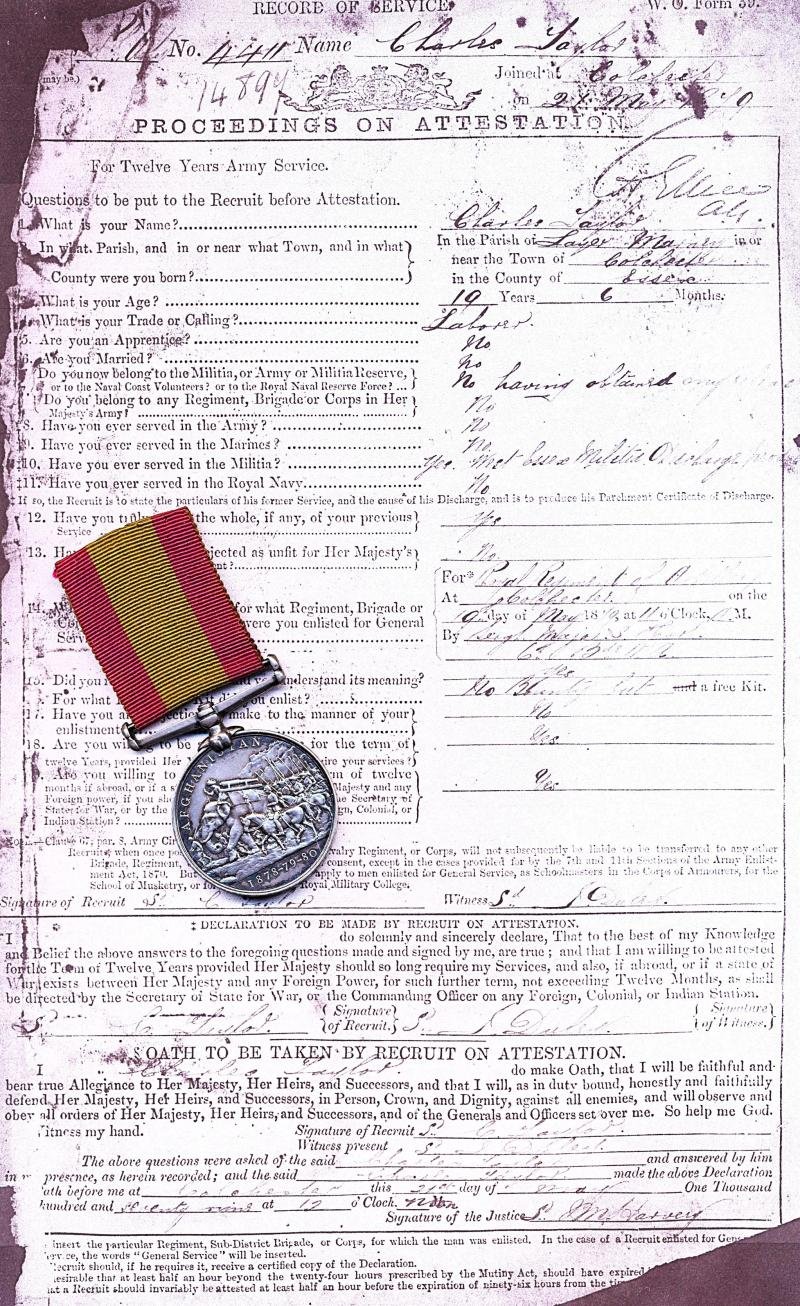 RECORD OF SERVICE. W. O. Form 39.
No. 4411 Name Charles Taylor
may be.) Joined at Colchester
14899 on May
PROCEEDINGS ON ATTESTATION.
For Twelve Years Army Service.
Questions to be put to the Recruit before Attestation.
What is your Name? Charles Taylor
In what Parish, and in or near what Town, and in what County were you born? In the Parish of Layer Marney in or
near the Town of Colchester
in the County of Essex
What is your Age? 19 Years 6 Months.
What is your Trade or Calling? Laborer.
5. Are you an Apprentice? No
6. Are you Married? No
Do you now belong to the Militia, or Army or Militia Reserve, No having obtained
or to the Naval Coast Volunteers? or to the Royal Naval Reserve Force?
Do you belong to any Regiment, Brigade or Corps in Her No
Majesty's Army?
8. Have you ever served in the Army? No
9. Have you ever served in the Marines? No
‡10. Have you ever served in the Militia? Yes. Essex Militia
‡11. Have you ever served in the Royal Navy No
‡ If so, the Recruit is to state the particulars of his former Service, and the cause of his Discharge, and is to produce his Parchment Certificate of Discharge.
12. Have you the whole, if any, of your previous Yes
Service
13. jected as unfit for Her Majesty's No
For Royal Regiment of
14. for what Regiment, Brigade or At Colchester on the
were you enlisted for General day of May at 11 o'Clock, M.
By
15. Did you understand its meaning? Yes
For what Kit did you enlist? No Bounty but and a free Kit.
17. Have you make to the manner of your No
enlistment
18. Are you for the term of Yes
twelve Years, provided Her ire your services?
Are you willing to m of twelve Yes
months if abroad, or if a st Majesty and any
Foreign power, if you sho ue Secretary of
State for War, or by the gn, Colonial, or
Indian Station?
AFGHANISTAN
1878-79-80
Clause 67; par. 8, Army Cir
Recruit, when once po valry Regiment, or Corps, will not subsequently be liable to be transferred to any other
Brigade, Regiment, consent, except in the cases provided for by the 7th and 11th Sections of the Army Enlist-
ment Act, 1870. But apply to men enlisted for General Service, as Schoolmasters in the Corps of Armourers, for the
School of Musketry, or fo Royal Military College.
Signature of Recruit C Taylor Witness
‡ DECLARATION TO BE MADE BY RECRUIT ON ATTESTATION.
I do solemnly and sincerely declare, That to the best of my Knowledge
and Belief the above answers to the foregoing questions made and signed by me, are true; and that I am willing to be attested
for the Term of Twelve Years provided Her Majesty should so long require my Services, and also, if abroad, or if a state of
War exists between Her Majesty and any Foreign Power, for such further term, not exceeding Twelve Months, as shall
be directed by the Secretary of State for War, or the Commanding Officer on any Foreign, Colonial, or Indian Station.
C Taylor Signature of Recruit. Signature of Witness.
§ OATH TO BE TAKEN BY RECRUIT ON ATTESTATION.
I Charles Taylor do make Oath, that I will be faithful and
bear true Allegiance to Her Majesty, Her Heirs, and Successors, and that I will, as in duty bound, honestly and faithfully
defend Her Majesty, Her Heirs, and Successors, in Person, Crown, and Dignity, against all enemies, and will observe and
obey all orders of Her Majesty, Her Heirs, and Successors, and of the Generals and Officers set over me. So help me God.
Witness my hand. Signature of Recruit C Taylor
Witness present
The above questions were asked of the said and answered by him
in presence, as herein recorded; and the said made the above Declaration
oath before me at Colchester this 21st day of May One Thousand
hundred and seventy nine at 12 o'Clock. Noon
Signature of the Justice
insert the particular Regiment, Sub-District Brigade, or Corps, for which the man was enlisted. In the case of a Recruit enlisted for Gene
ervice, the words "General Service" will be inserted.
Recruit should, if he requires it, receive a certified copy of the Declaration.
esirable that at least half an hour beyond the twenty-four hours prescribed by the Mutiny Act, should have expired
at a Recruit should invariably be attested at least half an hour before the expiration of ninety-six hours from the